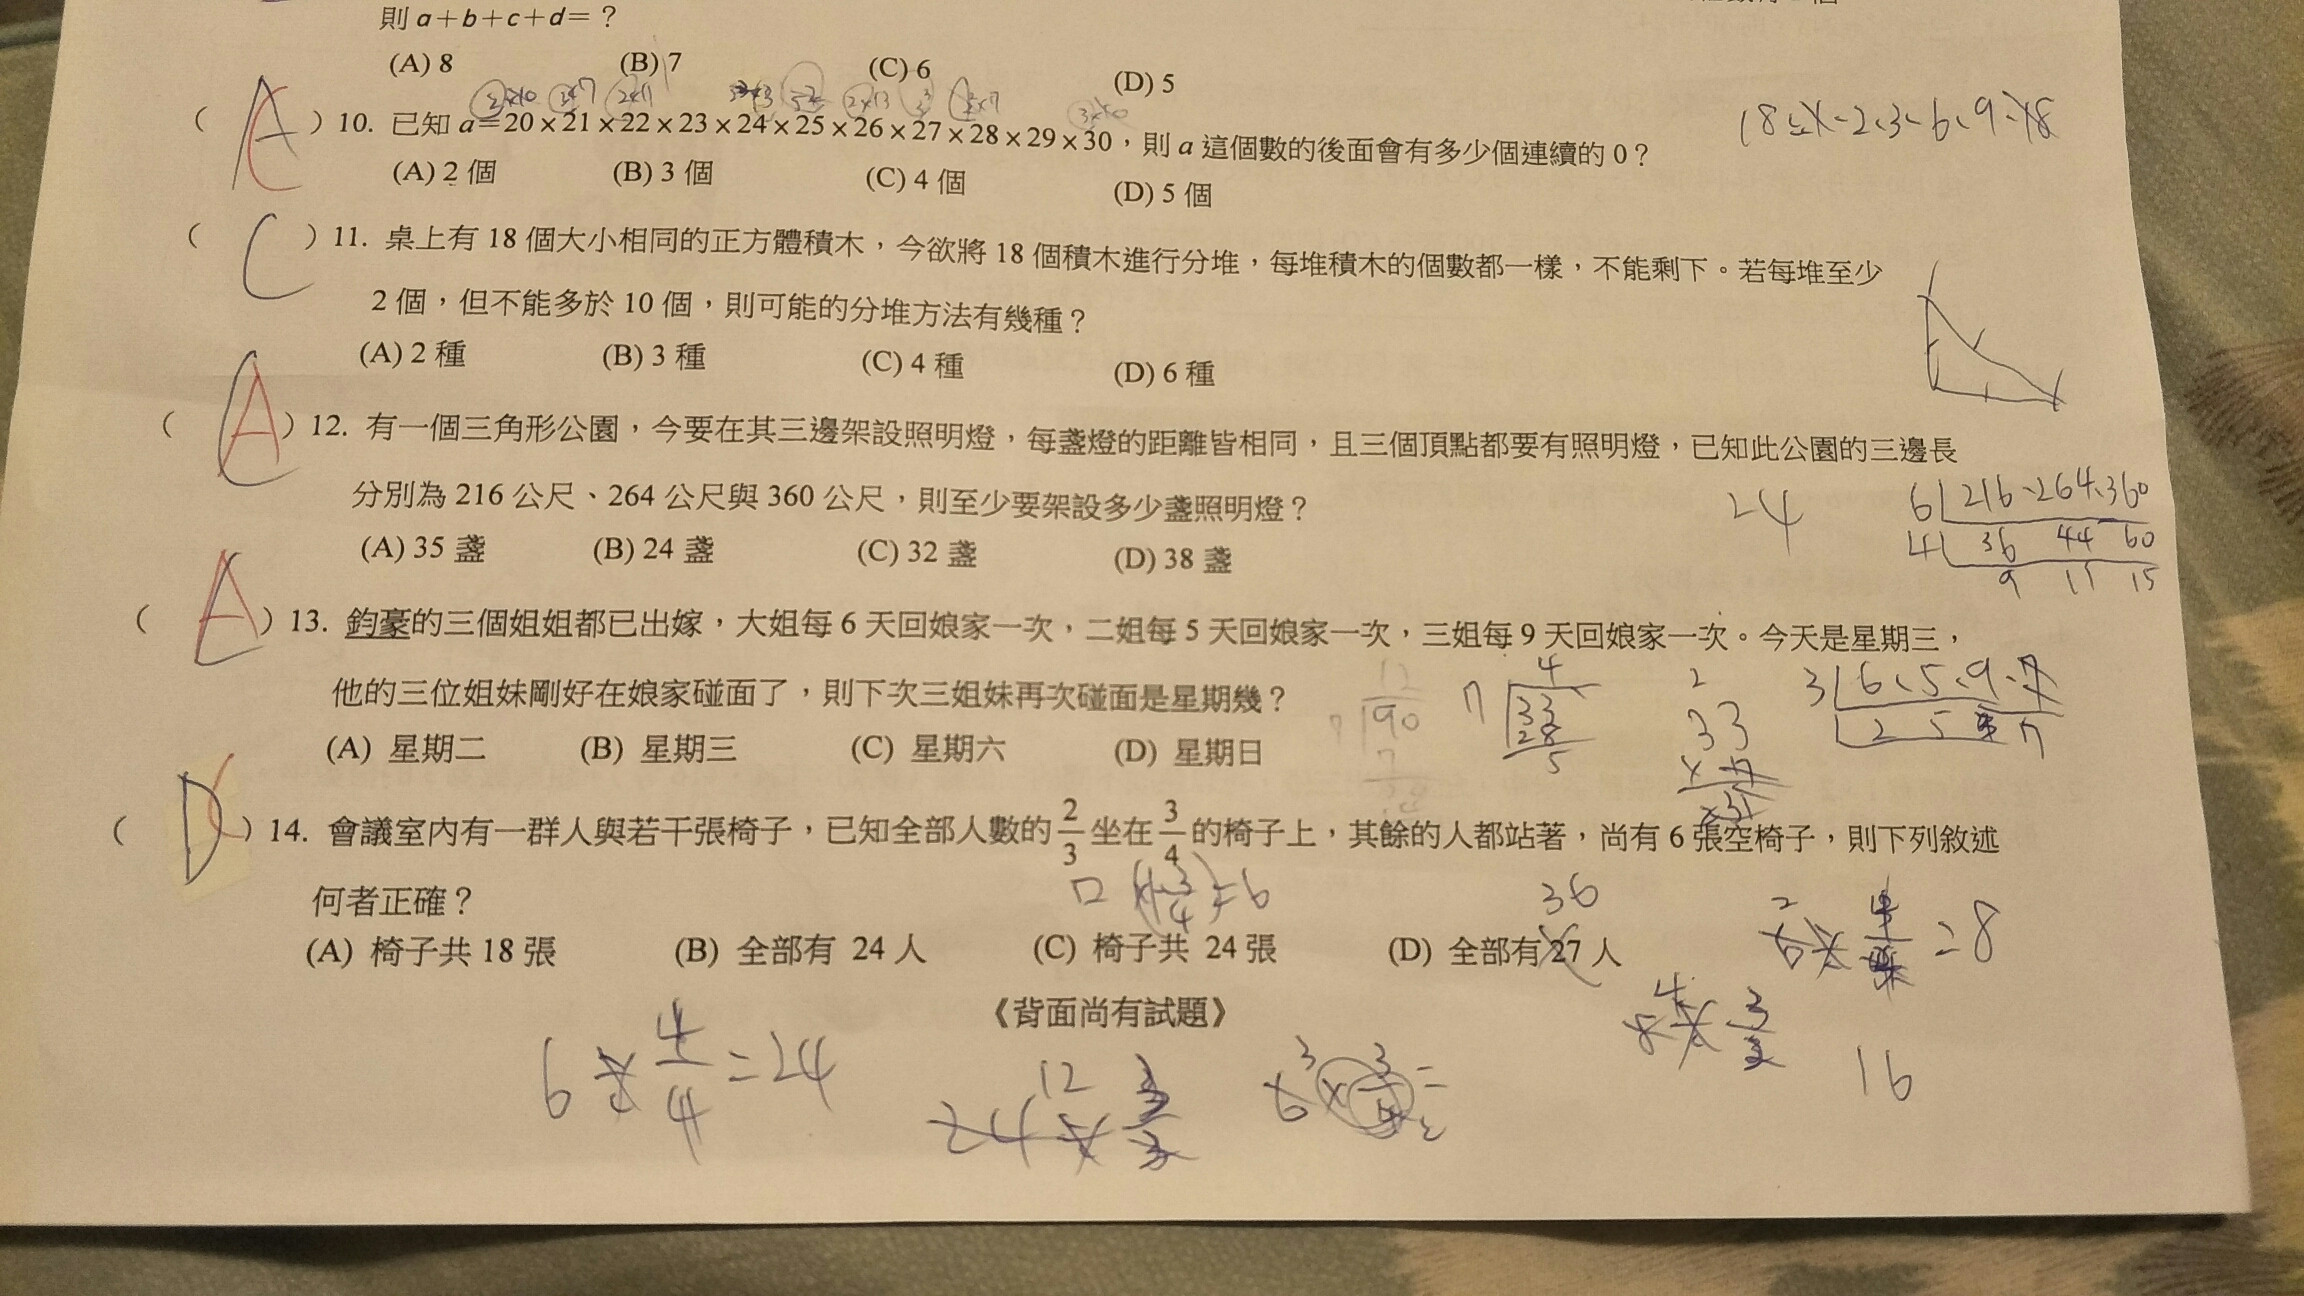 則 a+b+c+d=？
(A) 8 (B) 7 (C) 6 (D) 5
( A C ) 10. 已知 a=20×21×22×23×24×25×26×27×28×29×30，則 a 這個數的後面會有多少個連續的 0？
18 1、2、3、6、9、18
(A) 2 個 (B) 3 個 (C) 4 個 (D) 5 個
( C ) 11. 桌上有 18 個大小相同的正方體積木，今欲將 18 個積木進行分堆，每堆積木的個數都一樣，不能剩下。若每堆至少
2 個，但不能多於 10 個，則可能的分堆方法有幾種？
(A) 2 種 (B) 3 種 (C) 4 種 (D) 6 種
( A ) 12. 有一個三角形公園，今要在其三邊架設照明燈，每盞燈的距離皆相同，且三個頂點都要有照明燈，已知此公園的三邊長
分別為 216 公尺、264 公尺與 360 公尺，則至少要架設多少盞照明燈？
24
6 216、264、360
4 36 44 60
9 11 15
(A) 35 盞 (B) 24 盞 (C) 32 盞 (D) 38 盞
( A ) 13. 鈞豪的三個姐姐都已出嫁，大姐每 6 天回娘家一次，二姐每 5 天回娘家一次，三姐每 9 天回娘家一次。今天是星期三，
他的三位姐妹剛好在娘家碰面了，則下次三姐妹再次碰面是星期幾？
12
7 90
4
7 33
28
5
2
33
3 6、5、9、7
(A) 星期二 (B) 星期三 (C) 星期六 (D) 星期日
( D C ) 14. 會議室內有一群人與若干張椅子，已知全部人數的 2/3 坐在 3/4 的椅子上，其餘的人都站著，尚有 6 張空椅子，則下列敘述
何者正確？
36
=8
(A) 椅子共 18 張 (B) 全部有 24 人 (C) 椅子共 24 張 (D) 全部有 27 人
《背面尚有試題》
6 × 4/4 = 24
12
16